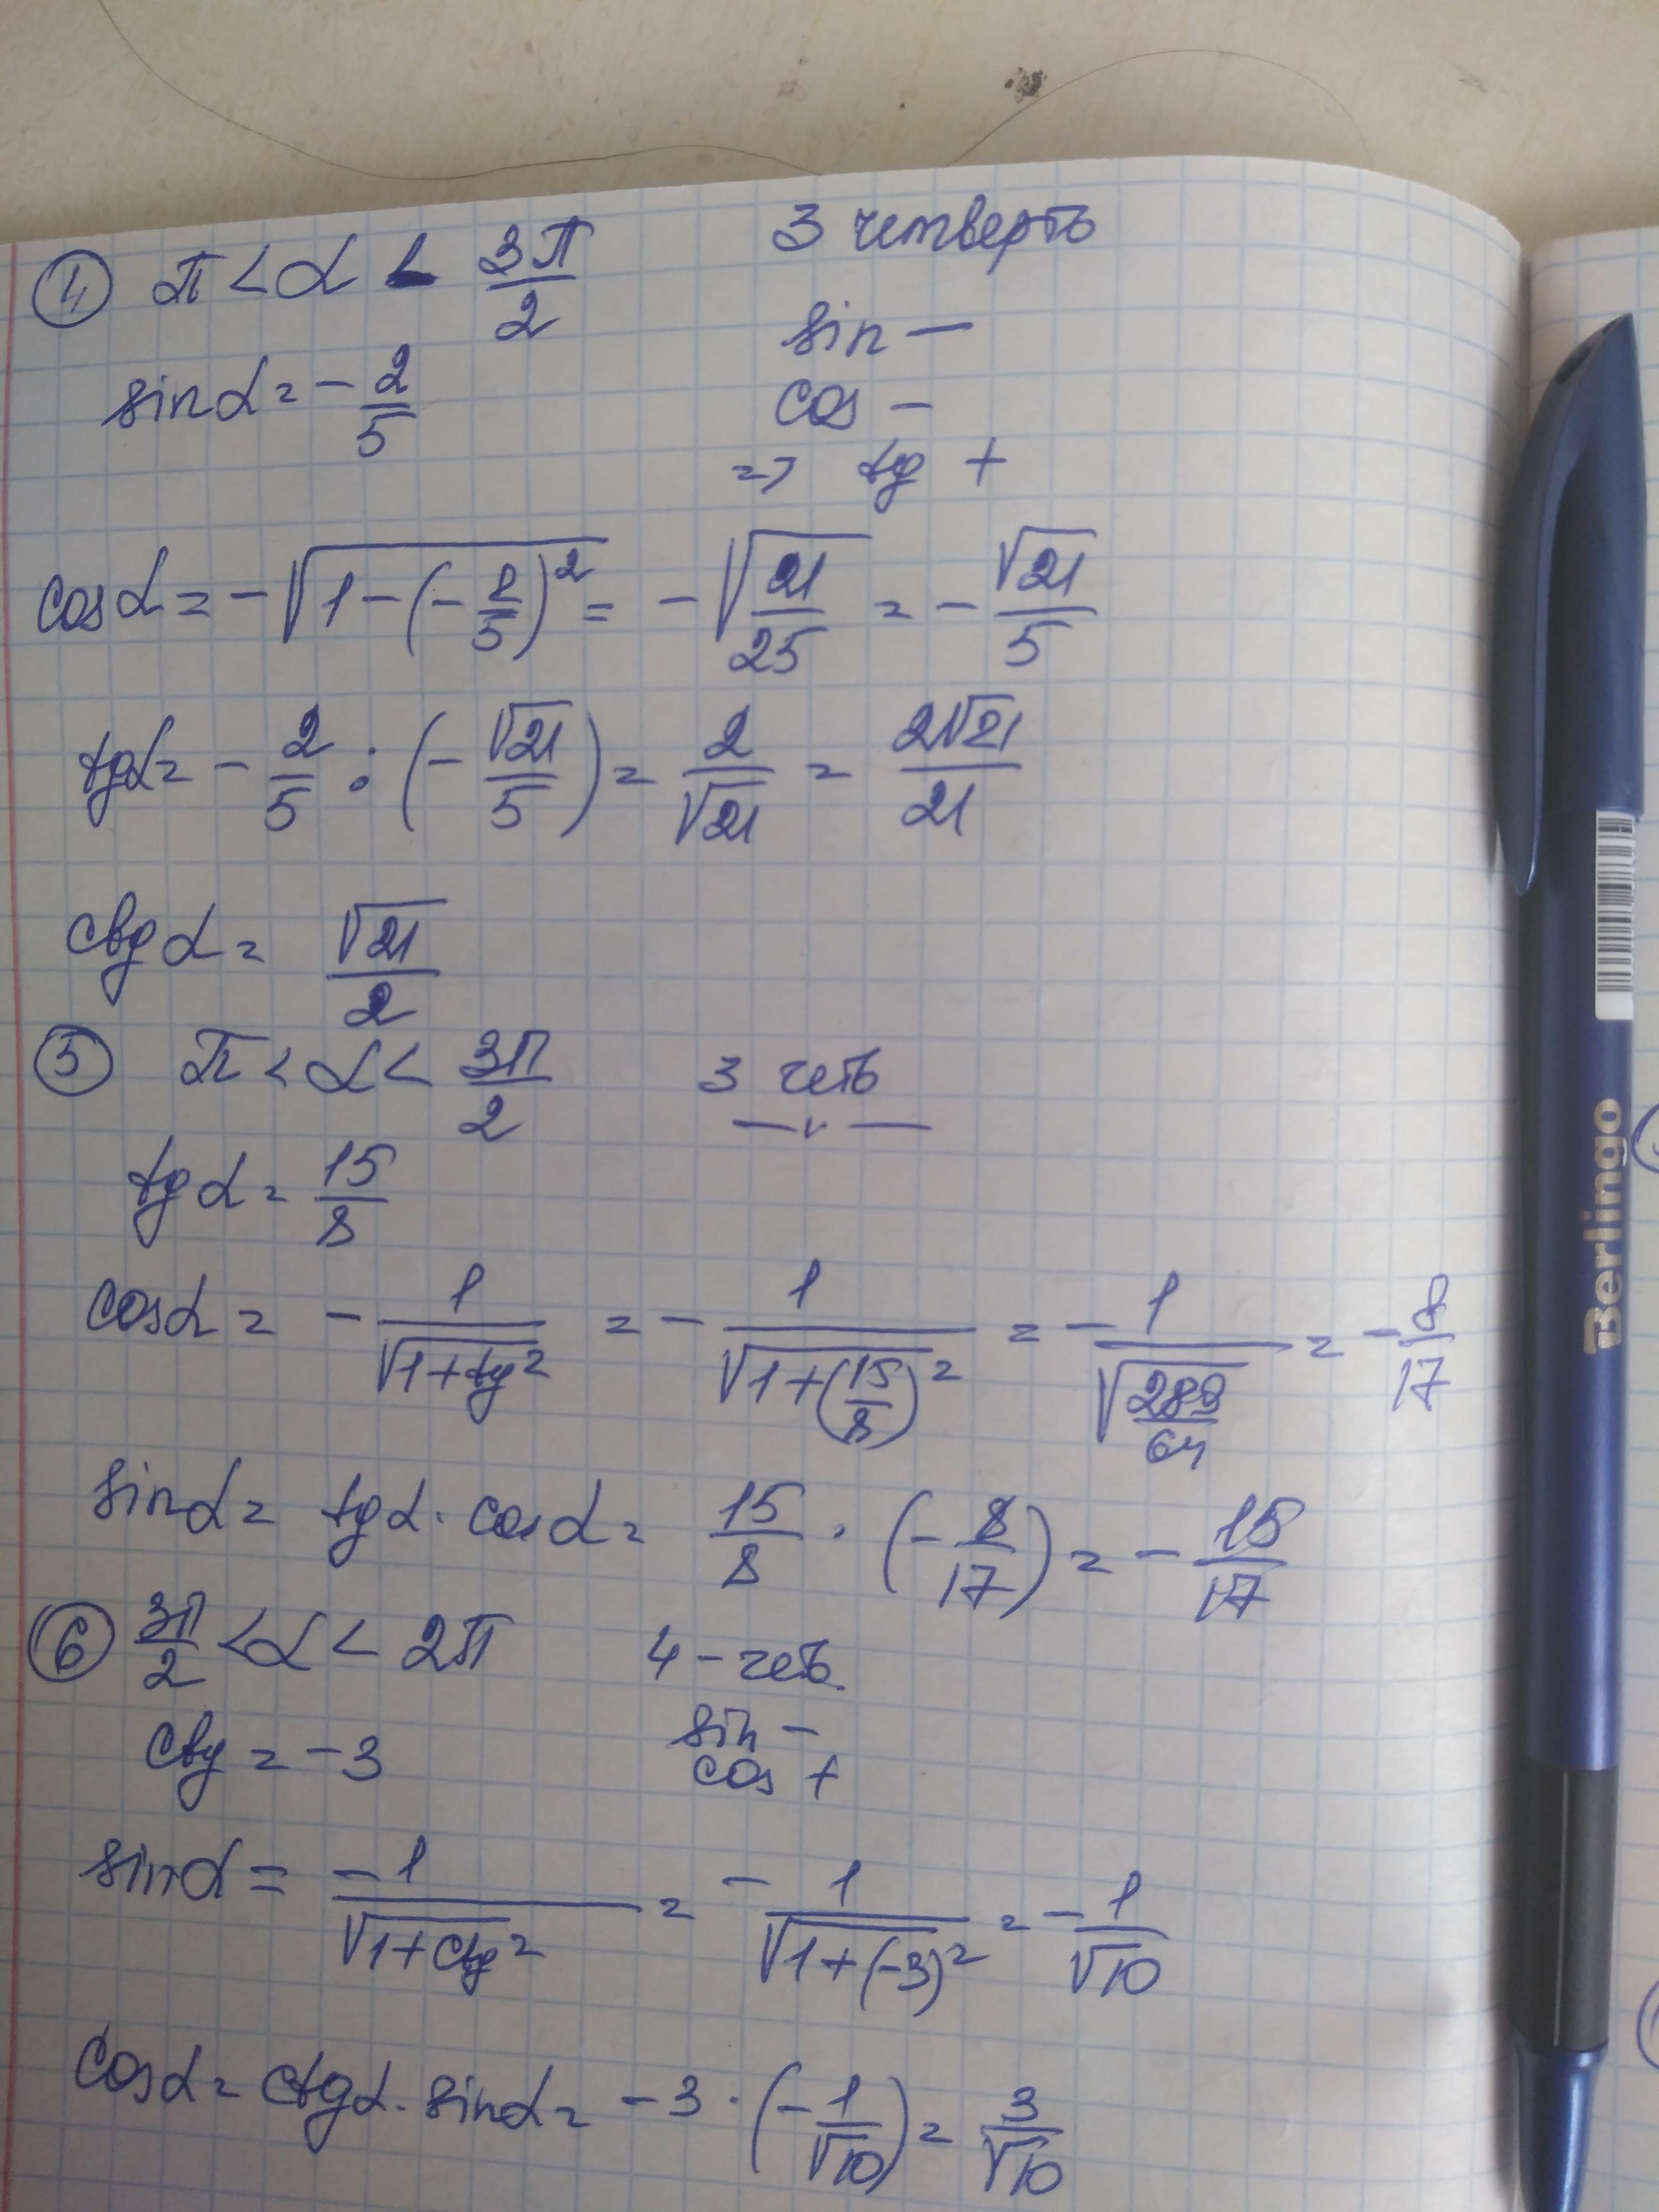 ④ π < α < 3π/2 3 четверть
sin —
sinα = - 2/5
cos —
=> tg +
cosα = -√(1-(-2/5)²) = -√(21/25) = -√21/5
tgα = - 2/5 : (-√21/5) = 2/√21 = 2√21/21
ctg α = √21/2
⑤ π < α < 3π/2 3 четв
— ״ —
tg α = 15/8
cosα = - 1/√(1+tg²) = - 1/√(1+(15/8)²) = - 1/√(289/64) = - 8/17
sinα = tgα · cosα = 15/8 · (-8/17) = - 15/17
⑥ 3π/2 < α < 2π 4-четв.
ctg = -3 sin —
cos +
sinα = -1/√(1+ctg²) = - 1/√(1+(-3)²) = - 1/√10
cosα = ctgα · sinα = -3 · (-1/√10) = 3/√10
Berlingo